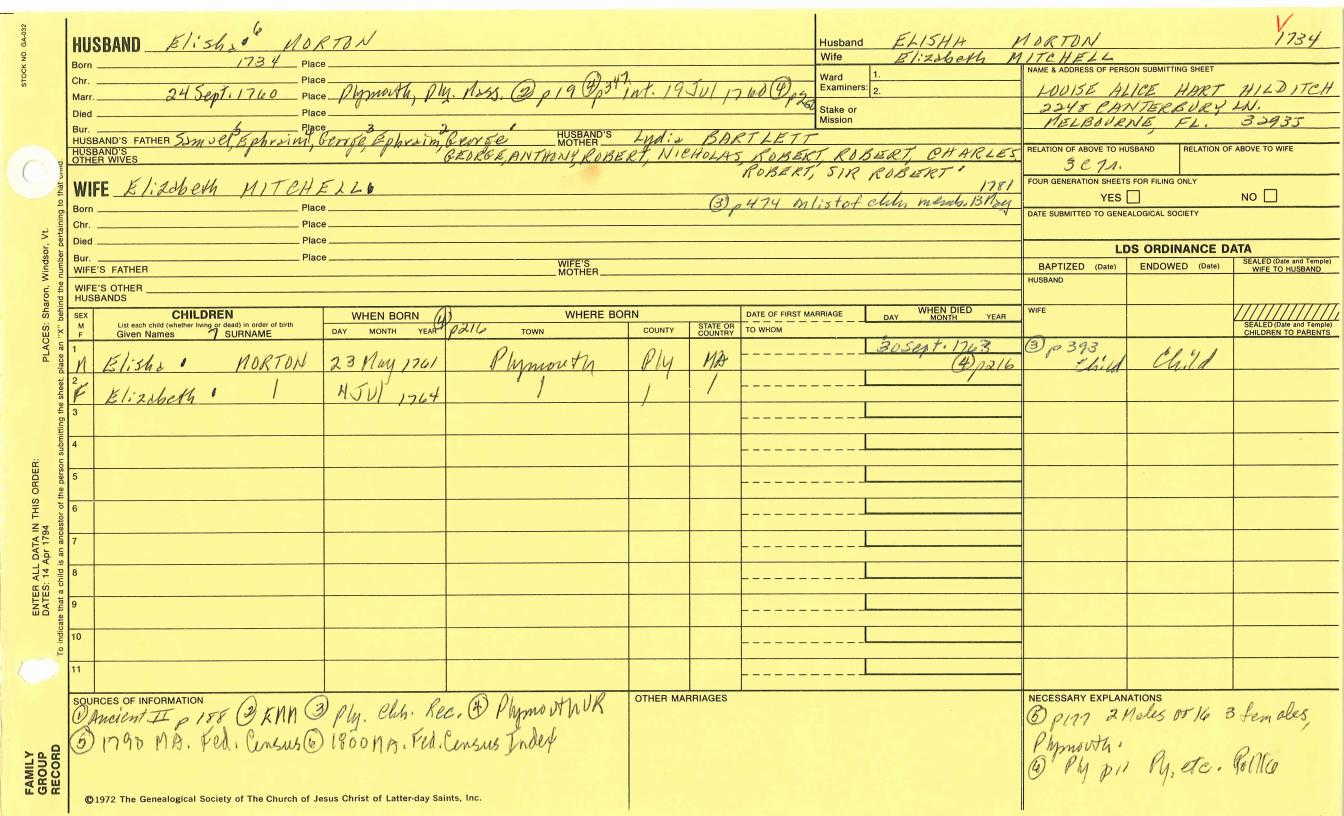 STOCK NO. GA-032
HUSBAND Elisha 6 MORTON
Born 1734 Place
Chr. Place
Marr. 24 Sept. 1760 Place Plymouth, Ply. Mass. ② p19 ④ p347. int. 19 Jul 1760 ④ p260
Died Place
Bur. Place
HUSBAND'S FATHER Samuel 5, Ephraim 4, George 3, Ephraim 2, George 1 HUSBAND'S MOTHER Lydia BARTLETT
HUSBAND'S OTHER WIVES GEORGE, ANTHONY, ROBERT, NICHOLAS, ROBERT, ROBERT, CHARLES
ROBERT, SIR ROBERT
WIFE Elizabeth MITCHELL 1781
Born Place ③ p474 on list of chh. memb. 13 May
Chr. Place
Died Place
Bur. Place
WIFE'S FATHER WIFE'S MOTHER
WIFE'S OTHER HUSBANDS
Husband ELISHA MORTON 1734
Wife Elizabeth MITCHELL
Ward Examiners: 1.
2.
Stake or Mission
NAME & ADDRESS OF PERSON SUBMITTING SHEET
LOUISE ALICE HART HILDITCH
2248 CANTERBURY LN.
MELBOURNE, FL. 32935
RELATION OF ABOVE TO HUSBAND RELATION OF ABOVE TO WIFE
3C7r.
FOUR GENERATION SHEETS FOR FILING ONLY
YES NO
DATE SUBMITTED TO GENEALOGICAL SOCIETY
LDS ORDINANCE DATA
BAPTIZED (Date) ENDOWED (Date) SEALED (Date and Temple) WIFE TO HUSBAND
HUSBAND
WIFE
SEALED (Date and Temple) CHILDREN TO PARENTS
SEX M F CHILDREN WHEN BORN ④ p216 WHERE BORN DATE OF FIRST MARRIAGE WHEN DIED
List each child (whether living or dead) in order of birth
Given Names 7 SURNAME DAY MONTH YEAR TOWN COUNTY STATE OR COUNTRY TO WHOM DAY MONTH YEAR
1 M Elisha MORTON 23 May 1761 Plymouth Ply MA 30 Sept. 1763 ④ p216 ③ p393 Child Child
2 F Elizabeth 4 Jul 1764
3
4
5
6
7
8
9
10
11
SOURCES OF INFORMATION
① Ancient II p 188 ② EMM ③ Ply. Chh. Rec. ④ Plymouth VR
⑤ 1790 MA. Fed. Census ⑥ 1800 MA. Fed. Census Index
OTHER MARRIAGES
NECESSARY EXPLANATIONS
⑤ p177 2 Males ov 16 3 females,
Plymouth.
⑥ Ply p11 Ply, etc.
©1972 The Genealogical Society of The Church of Jesus Christ of Latter-day Saints, Inc.
FAMILY GROUP RECORD
ENTER ALL DATA IN THIS ORDER:
DATES: 14 Apr 1794
PLACES: Sharon, Windsor, Vt.
To indicate that a child is an ancestor of the person submitting the sheet, place an "X" behind the number pertaining to that child.